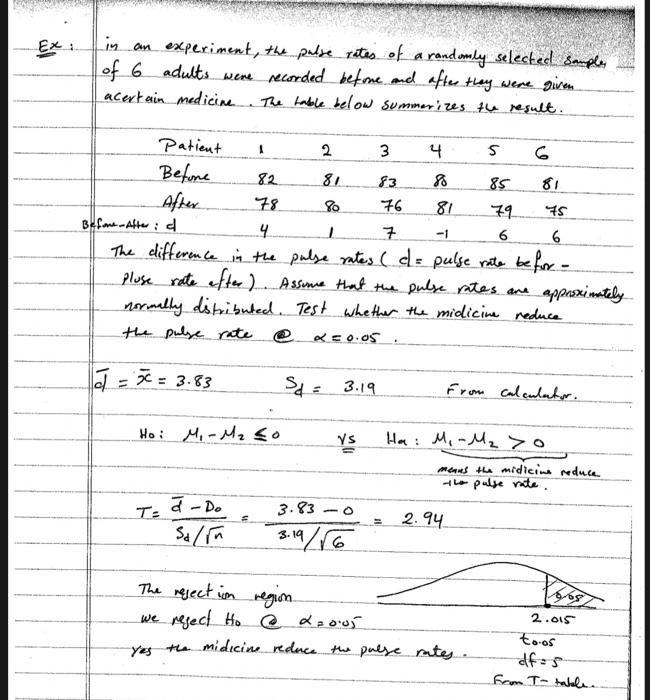 Ex: in an experiment, the pulse rates of a randomly selected sample
of 6 adults were recorded before and after they were given
acertain medicine. The table below summerizes the result.
Patient 1 2 3 4 5 6
Before 82 81 83 80 85 81
After 78 80 76 81 79 75
Before-After: d 4 1 7 -1 6 6
The difference in the pulse rates (d = pulse rate befor -
pluse rate after). Assume that the pulse rates are approximately
normally distributed. Test whether the midicine reduce
the pulse rate @ α = 0.05.
d̄ = x̄ = 3.83 Sd = 3.19 From calculator.
Ho: M₁-M₂ ≤ 0 vs Ha: M₁-M₂ > 0
means the midicine reduce
the pulse rate.
T = (d̄ - D₀)/(Sd/√n) = (3.83 - 0)/(3.19/√6) = 2.94
The rejection region
0.05
we reject Ho @ α = 0.05
2.015
t0.05
yes the midicine reduce the pulse rates.
df = 5
From T-table.